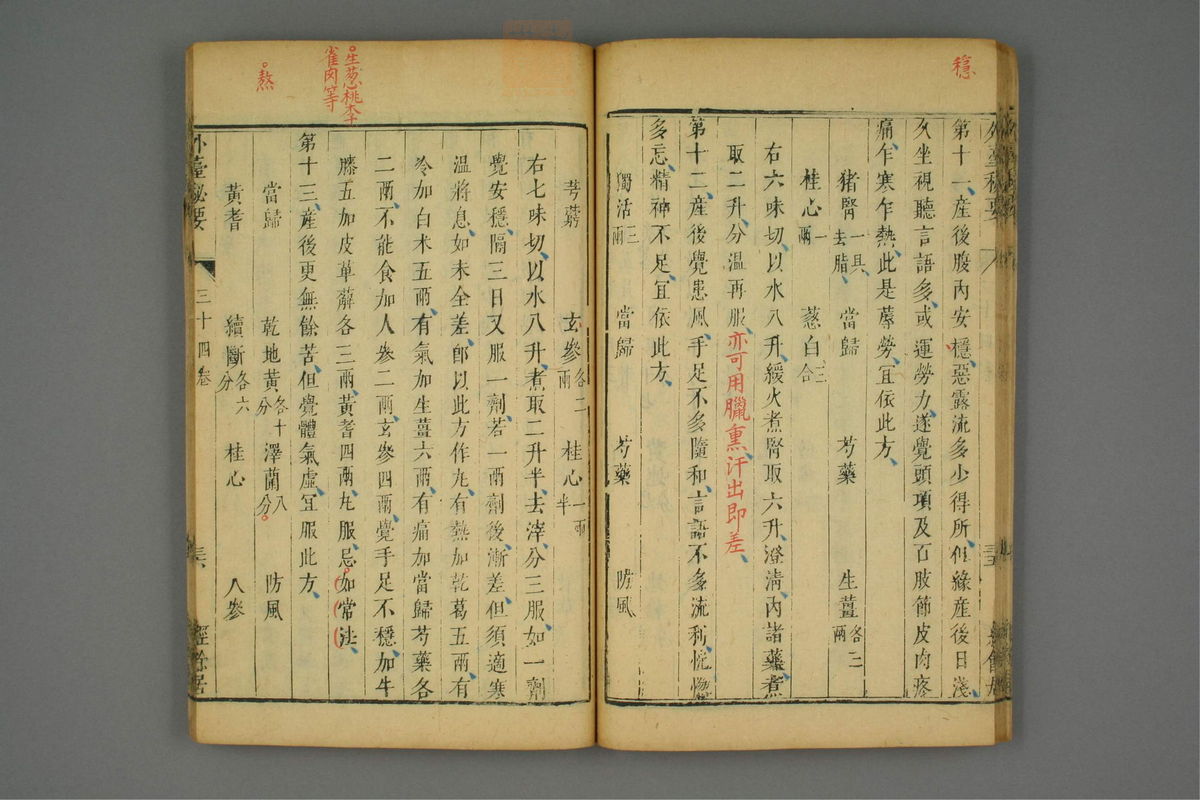 穩
第十一、產後腹內安穩、惡露流多少得所、但緣產後日淺、
久坐視聽言語多、或運勞力、遂覺頭項及百肢節皮肉疼
痛、乍寒乍熱、此是蓐勞、宜依此方、
猪腎一具去脂、 當歸 芍藥 生薑各二兩
桂心一兩 葱白三合
右六味切、以水八升、緩火煮腎取六升、澄清、內諸藥、煮
取二升、分溫再服、亦可用臘熏汗出即差、
第十二、產後覺患風、手足不多隨和、言語不多流利、恍惚
多忘、精神不足、宜依此方、
獨活三兩 當歸 芍藥 防風
芎藭 玄參各二兩 桂心一兩半
右七味切、以水八升、煮取二升半、去滓、分三服、如一劑
覺安穩、隔三日又服一劑、若一兩劑後、漸差、但須適寒
溫將息、如未全差、即以此方作丸、有熱加乾葛五兩、有
冷加白朮五兩、有氣加生薑六兩、有痛加當歸芍藥各
二兩、不能食加人參二兩、玄參四兩、覺手足不穩、加牛
膝五加皮萆薢各三兩、黃耆四兩、丸服、忌如常法、
生葱桃李
雀肉等
第十三、產後更無餘苦、但覺體氣虛、宜服此方、
熬
當歸 乾地黃各十分 澤蘭八分 防風
黃耆 續斷各六分 桂心 人參
外臺秘要 三十四卷 經餘居